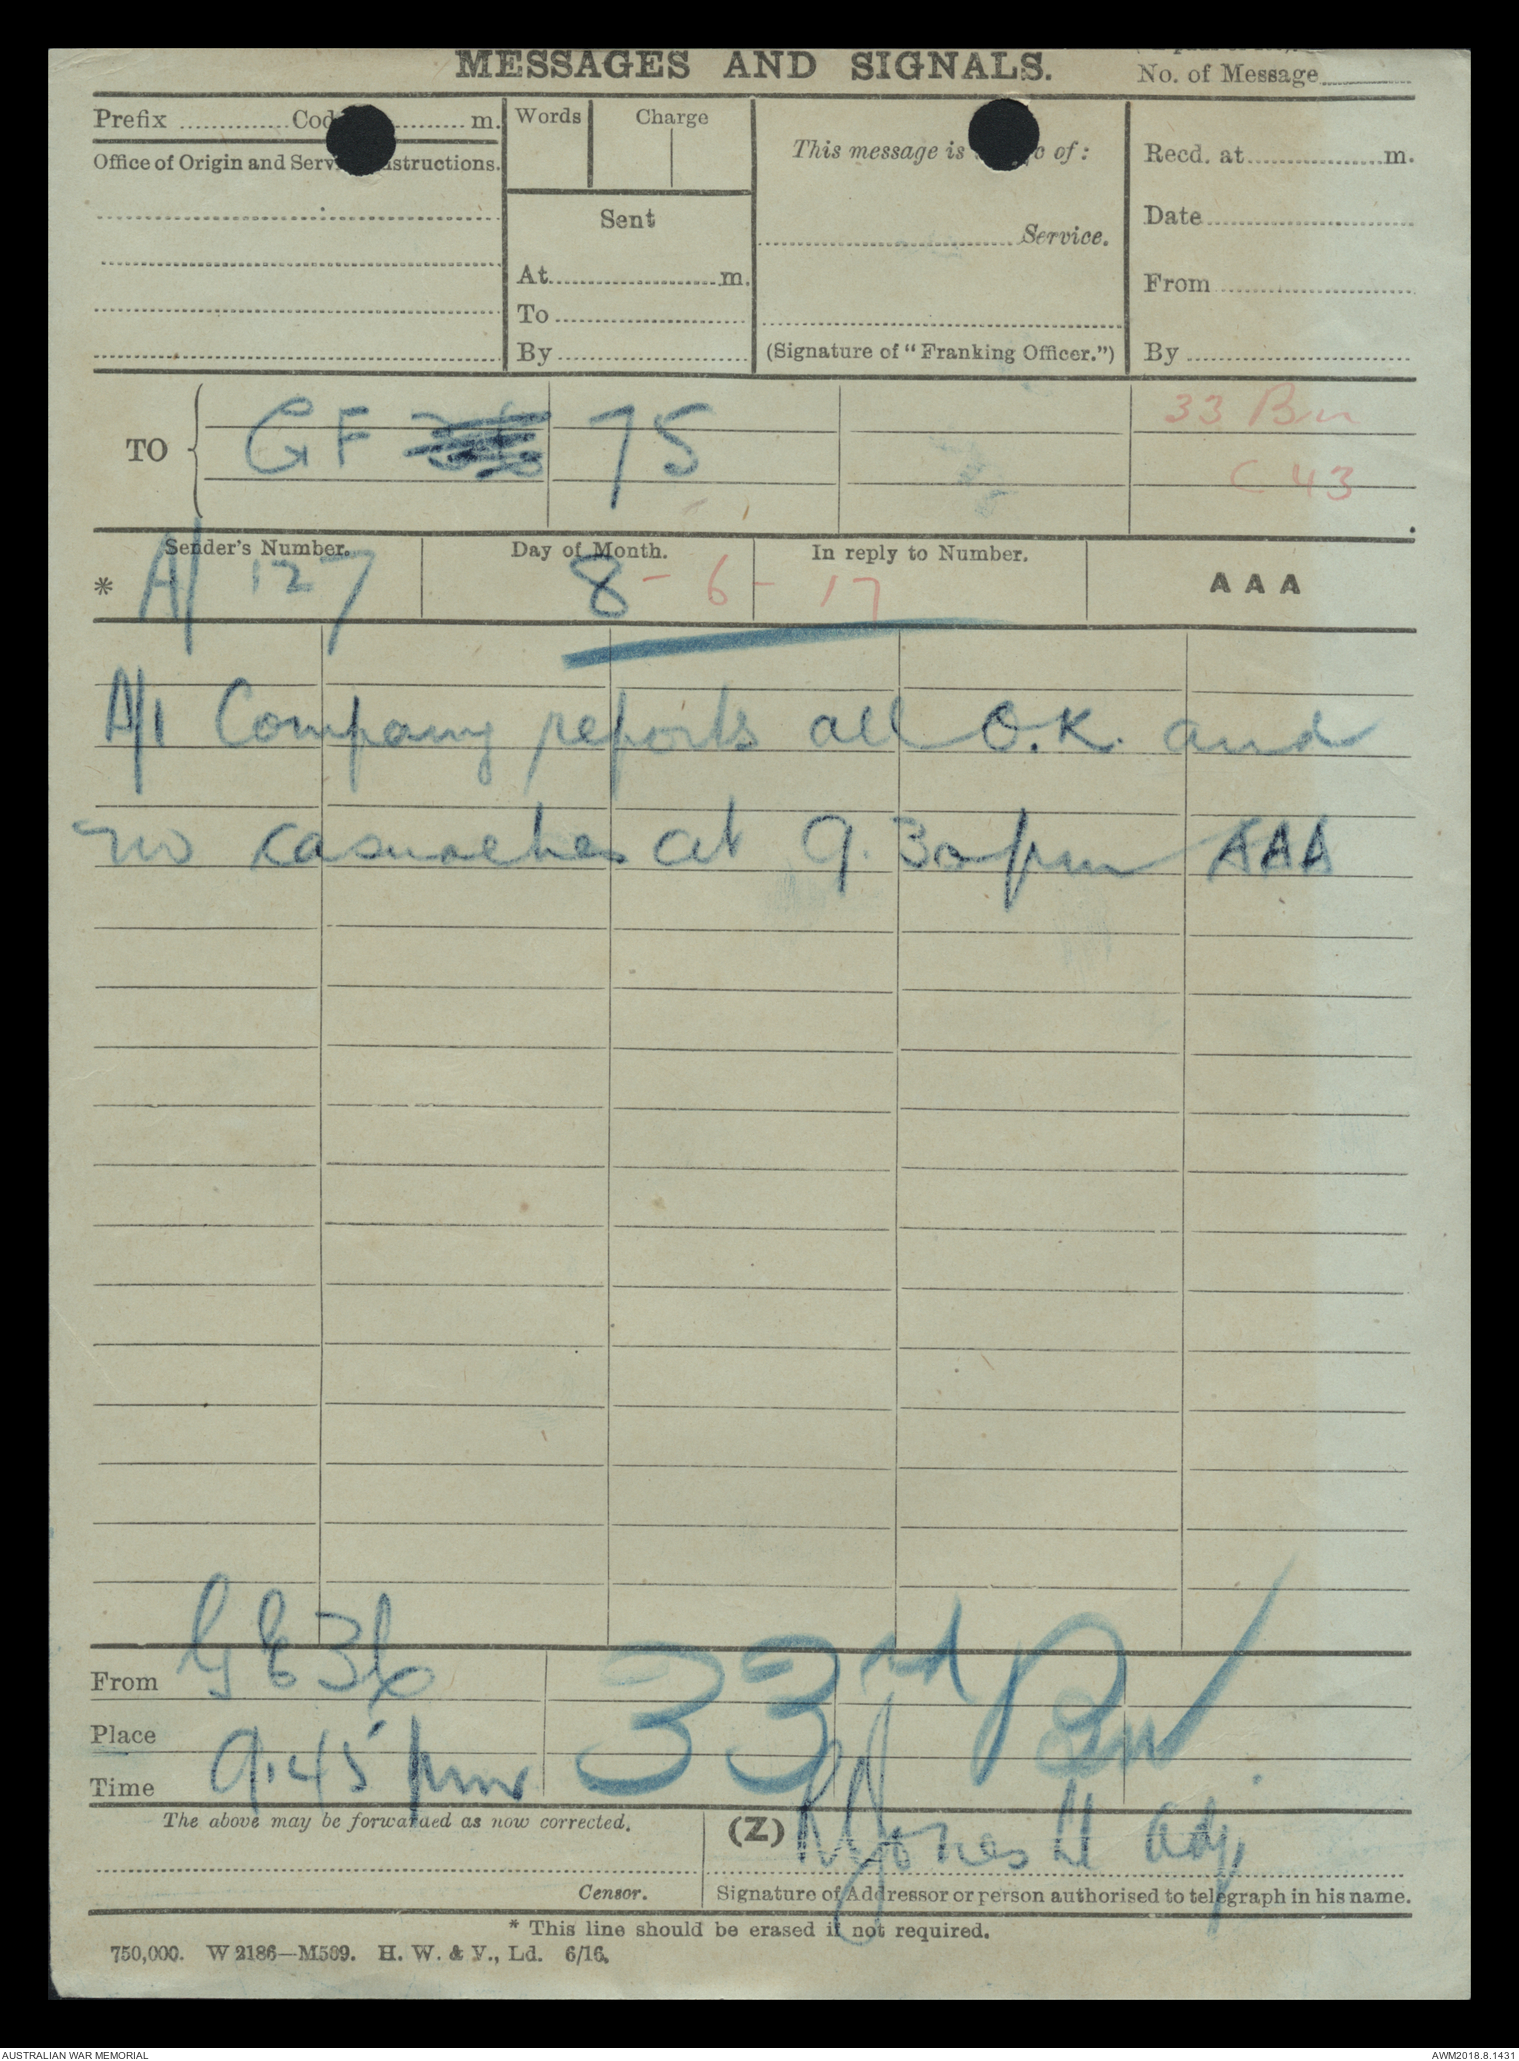 MESSAGES AND SIGNALS.
No. of Message
Prefix Cod m. Words Charge
This message is of:
Recd. at m.
Office of Origin and Serv nstructions.
Sent
Date
Service.
At m.
From
To
By
(Signature of "Franking Officer.")
By
TO
GF 75
33 Bn
C 43
Sender's Number. Day of Month. In reply to Number.
* A/127 8-6-17 AAA
A/1 Company reports all O.K. and
no casualties at 9.30 pm AAA
From GE36
33rd Bn
Place
Time 9.45 pm
The above may be forwarded as now corrected. (Z) Jones Lt Adj.
Censor. Signature of Addressor or person authorised to telegraph in his name.
* This line should be erased if not required.
750,000. W 2186—M509. H. W. & V., Ld. 6/16.
AUSTRALIAN WAR MEMORIAL
AWM2018.8.1431